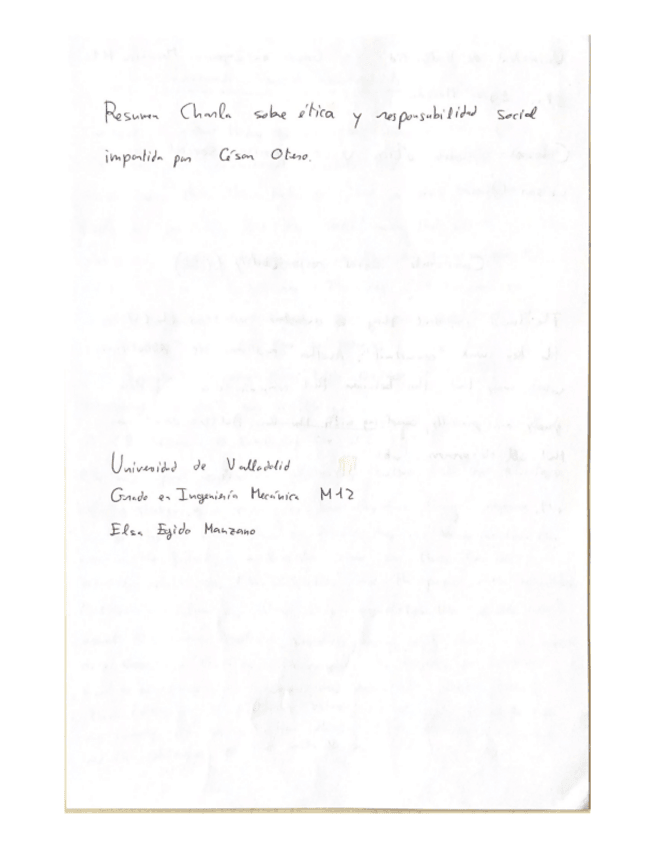 Resumen Charla sobre ética y responsabilidad social
impartida por César Otero.
Universidad de Valladolid
Grado en Ingeniería Mecánica M12
Elsa Egido Manzano